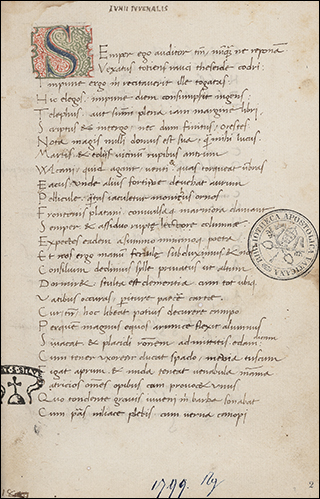 IVNII IVVENALIS
SEmper ego auditor tm̄, nunq̄ ne reponā
Vexatus totiens rauci theseide codri:
Impune ergo m̄ recitauerit ille togatas
Hic elegos: impune diem consumpserit ingens
Telephus: aut summi plena iam margine libri
Scriptus & in tergo: nec dum finitus, orestes
Nota magis nulli domus est sua, q̄ mihi lucus
Martis & eoliis vicinum rupibus antrum
Vulcani, quid agant venti: quas torqueat vmbras
Eacus, vnde alius furtiue deuehat aurum
Pellicule: iaculetur monicus ornos
Frontonis platani: conuulsaq; marmora clamant
Semper & assiduo rupte lectore columne
Expectes eadem a summo minimoq; poeta
Et nos ergo manum ferule subduximus & nos
Consilium dedimus sylle priuatus ut altum
Dormiret stulta est clementia cum tot ubiq;
Vatibus occurras, periture parcere carte
Cur tm̄ hoc libeat potius decurrere campo
Perquē magnus equos aurunce flexit alumnus
Si vacat & placidi rōnem admittitis edam:
Cum tener vxorem ducat spado, meuia tuscum
Figat aprum, & nuda teneat venabula mamma
Patricios omnes opibus cum prouocet vnus
Quo tondente grauis iuueni m̄ barba sonabat
Cum pars niliace plebis: cum verna canopi
BIBLIOTHECA APOSTOLICA VATICANA
1799. Rg
2